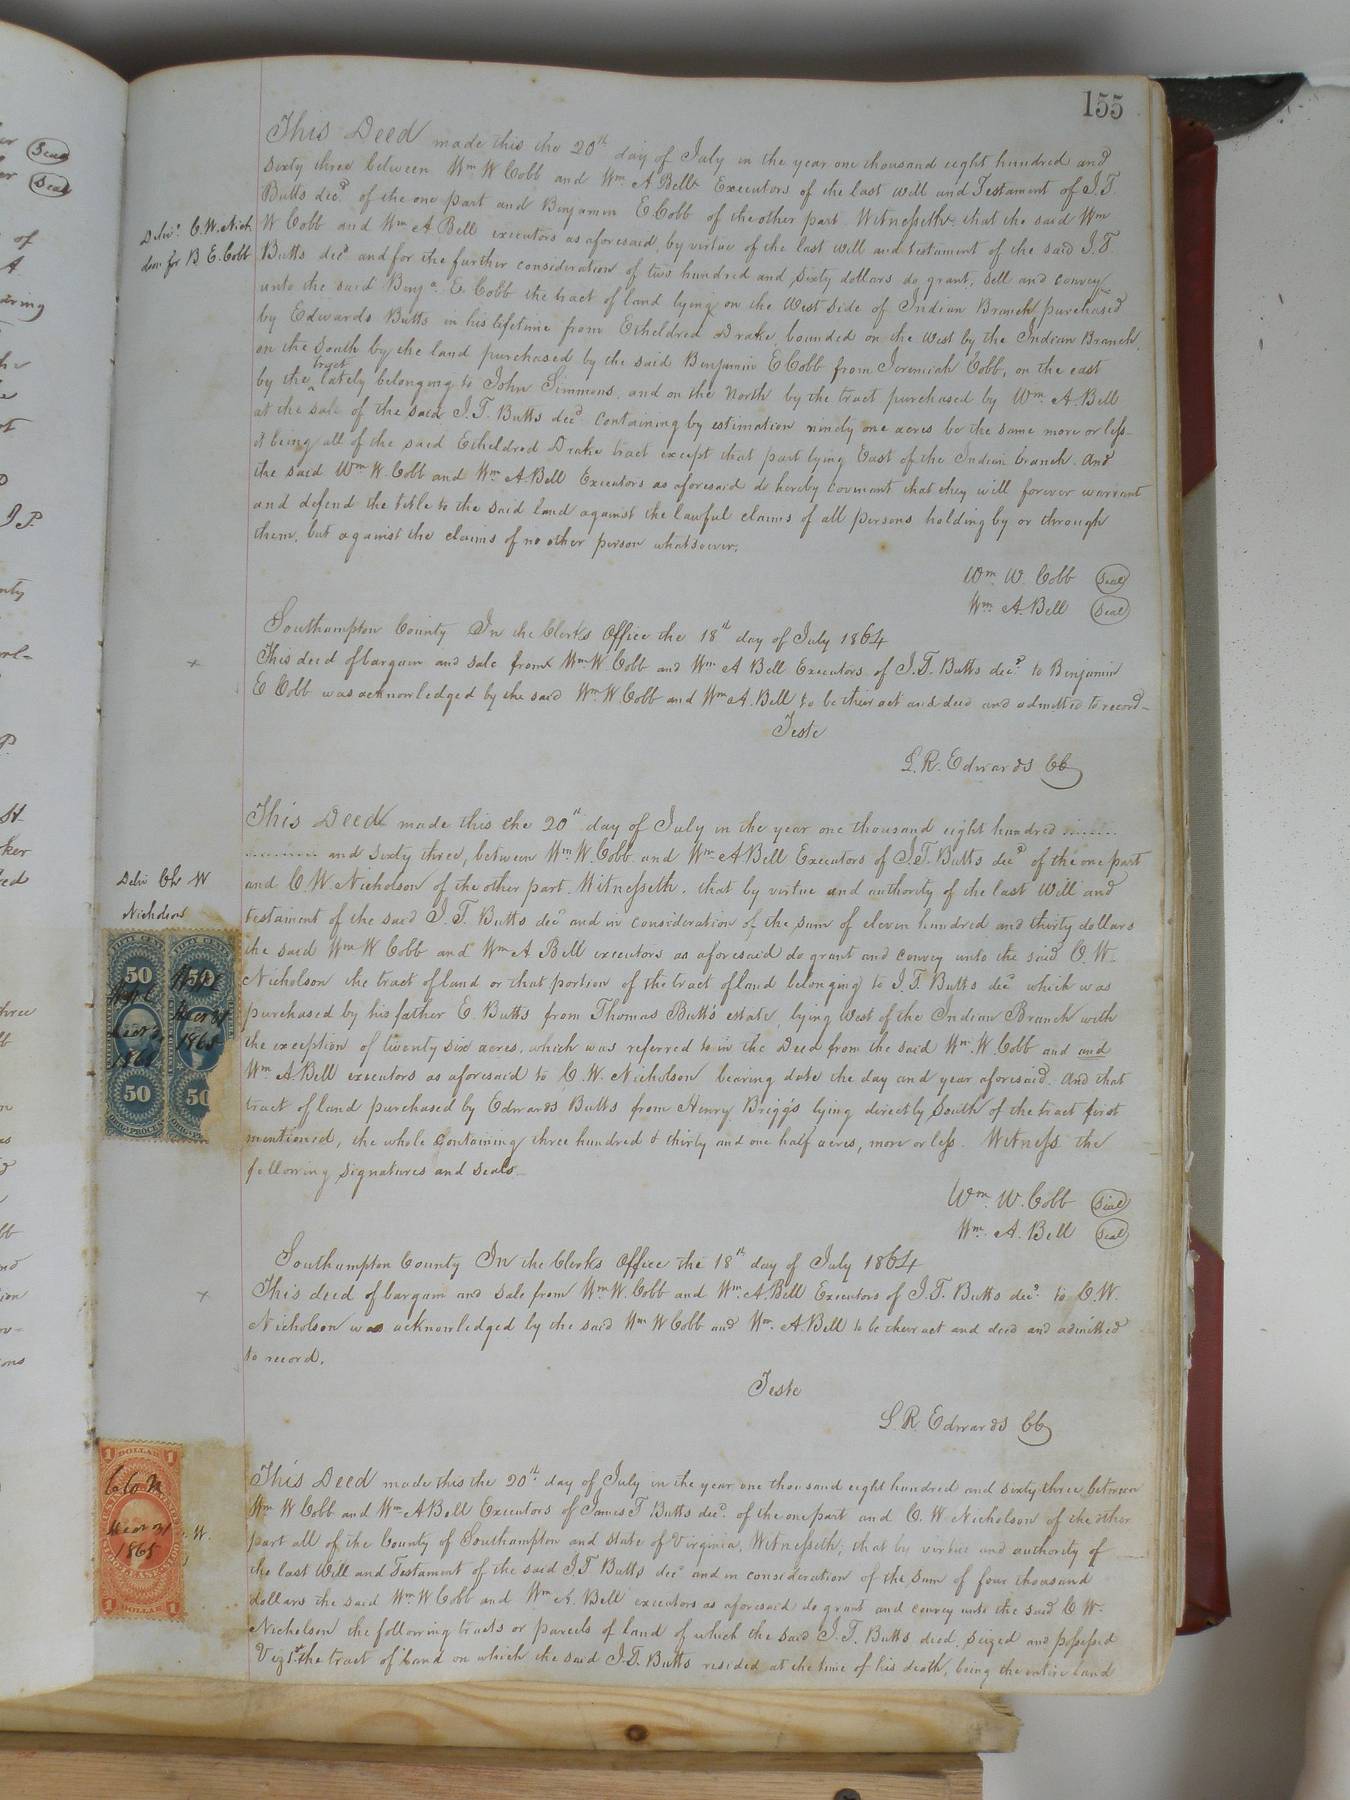 155
This Deed made this the 20th day of July in the year one thousand eight hundred and
Sixty three between Wm W Cobb and Wm. A Bell Executors of the last will and Testament of J.T.
Butts decd. of the one part and Benjamin E Cobb of the other part. Witnesseth that the said Wm
W Cobb and Wm A Bell executors as aforesaid, by virtue of the last will and testament of the said J.T.
Butts decd and for the further consideration of two hundred and sixty dollars do grant, sell and convey
unto the said Benja. E. Cobb the tract of land lying on the West side of Indian Branch, purchased
by Edwards Butts in his lifetime from Etheldred Drake, bounded on the West by the Indian Branch,
on the South by the land purchased by the said Benjamin E Cobb from Jeremiah Cobb, on the east
by the tract lately belonging to John Simmons, and on the North by the tract purchased by Wm. A. Bell
at the sale of the said J.T. Butts decd. containing by estimation ninety one acres be the same more or less
& being all of the said Etheldred Drake tract except that part lying East of the Indian branch. And
the said Wm W. Cobb and Wm. A. Bell Executors as aforesaid do hereby covenant that they will forever warrant
and defend the title to the said land against the lawful claims of all persons holding by or through
them, but against the claims of no other person whatsoever.
Delivd. C.W. Nich
olson for B E. Cobb
Wm. W. Cobb Seal
Wm. A. Bell Seal
Southampton County In the Clerk's Office the 18th day of July 1864
This deed of bargain and sale from Wm W. Cobb and Wm A Bell Executors of J.T. Butts decd. to Benjamin
E Cobb was acknowledged by the said Wm W. Cobb and Wm A. Bell to be their act and deed and admitted to record-
Teste
L. R. Edwards CC
This Deed made this the 20th day of July in the year one thousand eight hundred .......
.......... and sixty three, between Wm W. Cobb and Wm A Bell Executors of J.T. Butts decd of the one part
and C. W Nicholson of the other part. Witnesseth, that by virtue and authority of the last Will and
testament of the said J. T. Butts decd and in consideration of the sum of eleven hundred and thirty dollars
the said Wm W Cobb and Wm A Bell executors as aforesaid do grant and convey unto the said C. W.
Nicholson the tract of land or that portion of the tract of land belonging to J. T. Butts decd which was
purchased by his father E. Butts from Thomas Butts estate, lying West of the Indian Branch with
the exception of twenty six acres, which was referred to in the Deed from the said Wm. W Cobb and and
Wm A Bell executors as aforesaid to C. W. Nicholson bearing date the day and year aforesaid. And that
tract of land purchased by Edwards Butts from Henry Briggs lying directly South of the tract first
mentioned, the whole containing three hundred & thirty and one half acres, more or less. Witness the
following signatures and seals
Deliv Ch W
Nicholson
50
50
50
50
1865
Wm. W. Cobb Seal
Wm. A. Bell Seal
Southampton County In the Clerks Office the 18th day of July 1864
This deed of bargain and sale from Wm W. Cobb and Wm. A. Bell Executors of J. T. Butts decd. to C. W.
Nicholson was acknowledged by the said Wm W Cobb and Wm. A. Bell to be their act and deed and admitted
to record.
Teste
L. R. Edwards CC
This Deed made this the 20th day of July in the year one thousand eight hundred and sixty three between
Wm W Cobb and Wm A Bell Executors of James T Butts decd. of the one part and C. W Nicholson of the other
part all of the County of Southampton and State of Virginia, Witnesseth; that by virtue and authority of
the last Will and Testament of the said J T Butts decd and in consideration of the sum of four thousand
dollars the said Wm W Cobb and Wm A. Bell executors as aforesaid do grant and convey unto the said C W.
Nicholson the following tracts or parcels of land of which the said J. T. Butts died, seized and possessed
Viz 1st the tract of land on which the said J. T. Butts resided at the time of his death, being the entire land
1 DOLLAR 1
1865
1 DOLLAR 1
W.